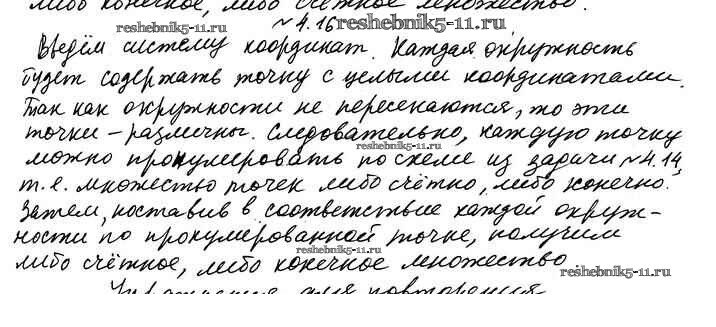 либо конечное, либо счётное множество.
№ 4.16
reshebnik5-11.ru
Введём систему координат. Каждая окружность
будет содержать точку с целыми координатами.
Так как окружности не пересекаются, то эти
точки – различны. Следовательно, каждую точку
reshebnik5-11.ru
можно пронумеровать по схеме из задачи № 4.14,
т.е. множество точек либо счётно, либо конечно.
Затем, поставив в соответствие каждой окруж-
ности по пронумерованной точке, получим
reshebnik5-11.ru
либо счётное, либо конечное множество.
reshebnik5-11.ru
Упражнения для повторения